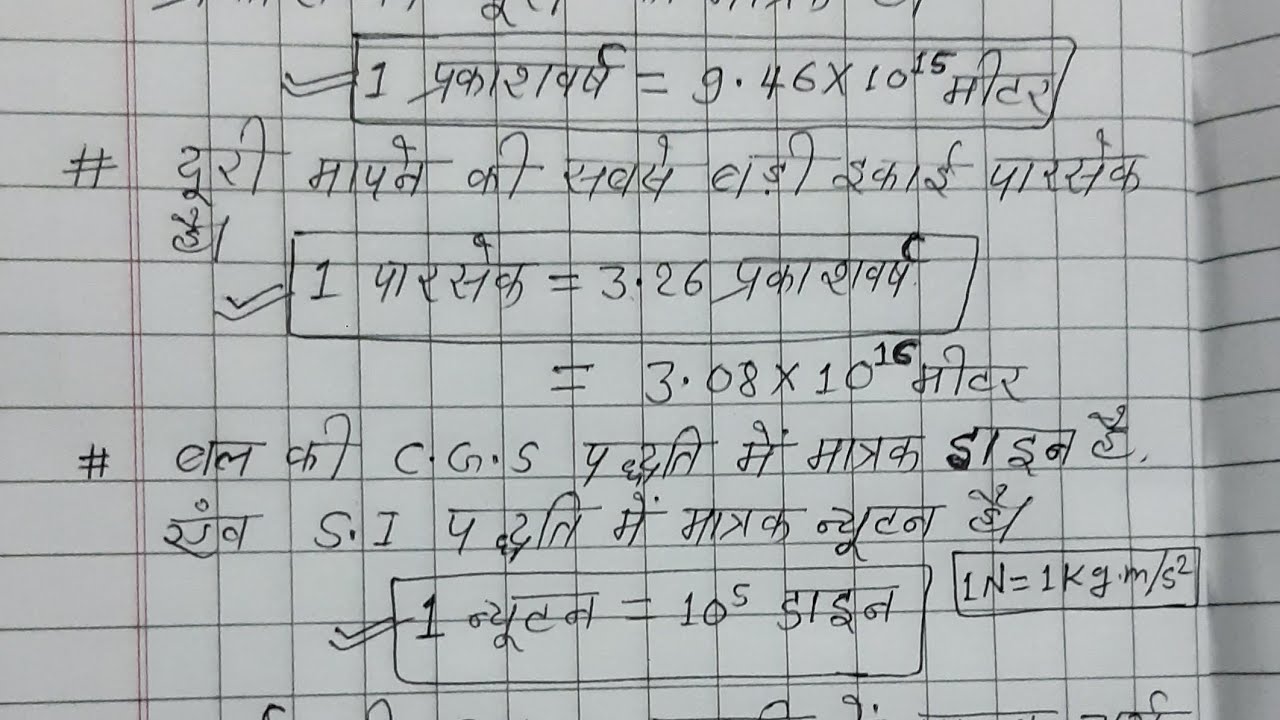 1 प्रकाशवर्ष = 9.46 × 10¹⁵ मीटर
# दूरी मापने की सबसे बड़ी इकाई पारसेक
है।
1 पारसेक = 3.26 प्रकाशवर्ष
= 3.08 × 10¹⁶ मीटर
# बल की C.G.S पद्धति में मात्रक डाइन है.
एंव S.I पद्धति में मात्रक न्यूटन है।
1N = 1Kg.m/s²
1 न्यूटन = 10⁵ डाइन